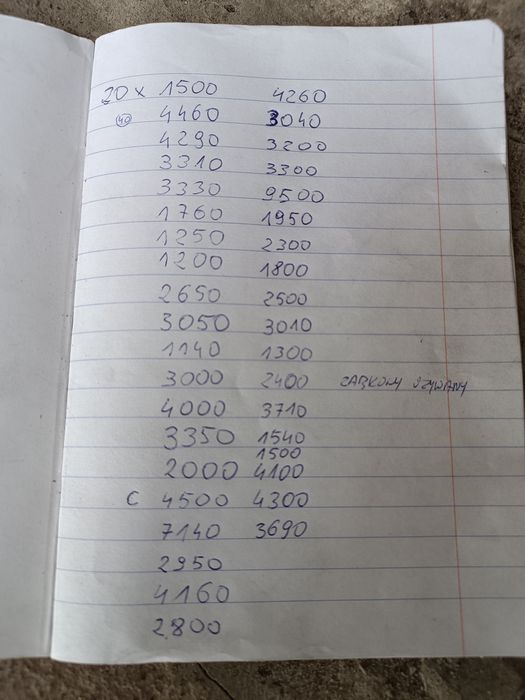 20 x 1500 4260
40 4460 3040
4290 3200
3310 3300
3330 9500
1760 1950
1250 2300
1200 1800
2650 2500
3050 3010
1140 1300
3000 2400
4000 3710
3350 1540
1500
2000 4100
C 4500 4300
7140 3690
2950
4160
2800